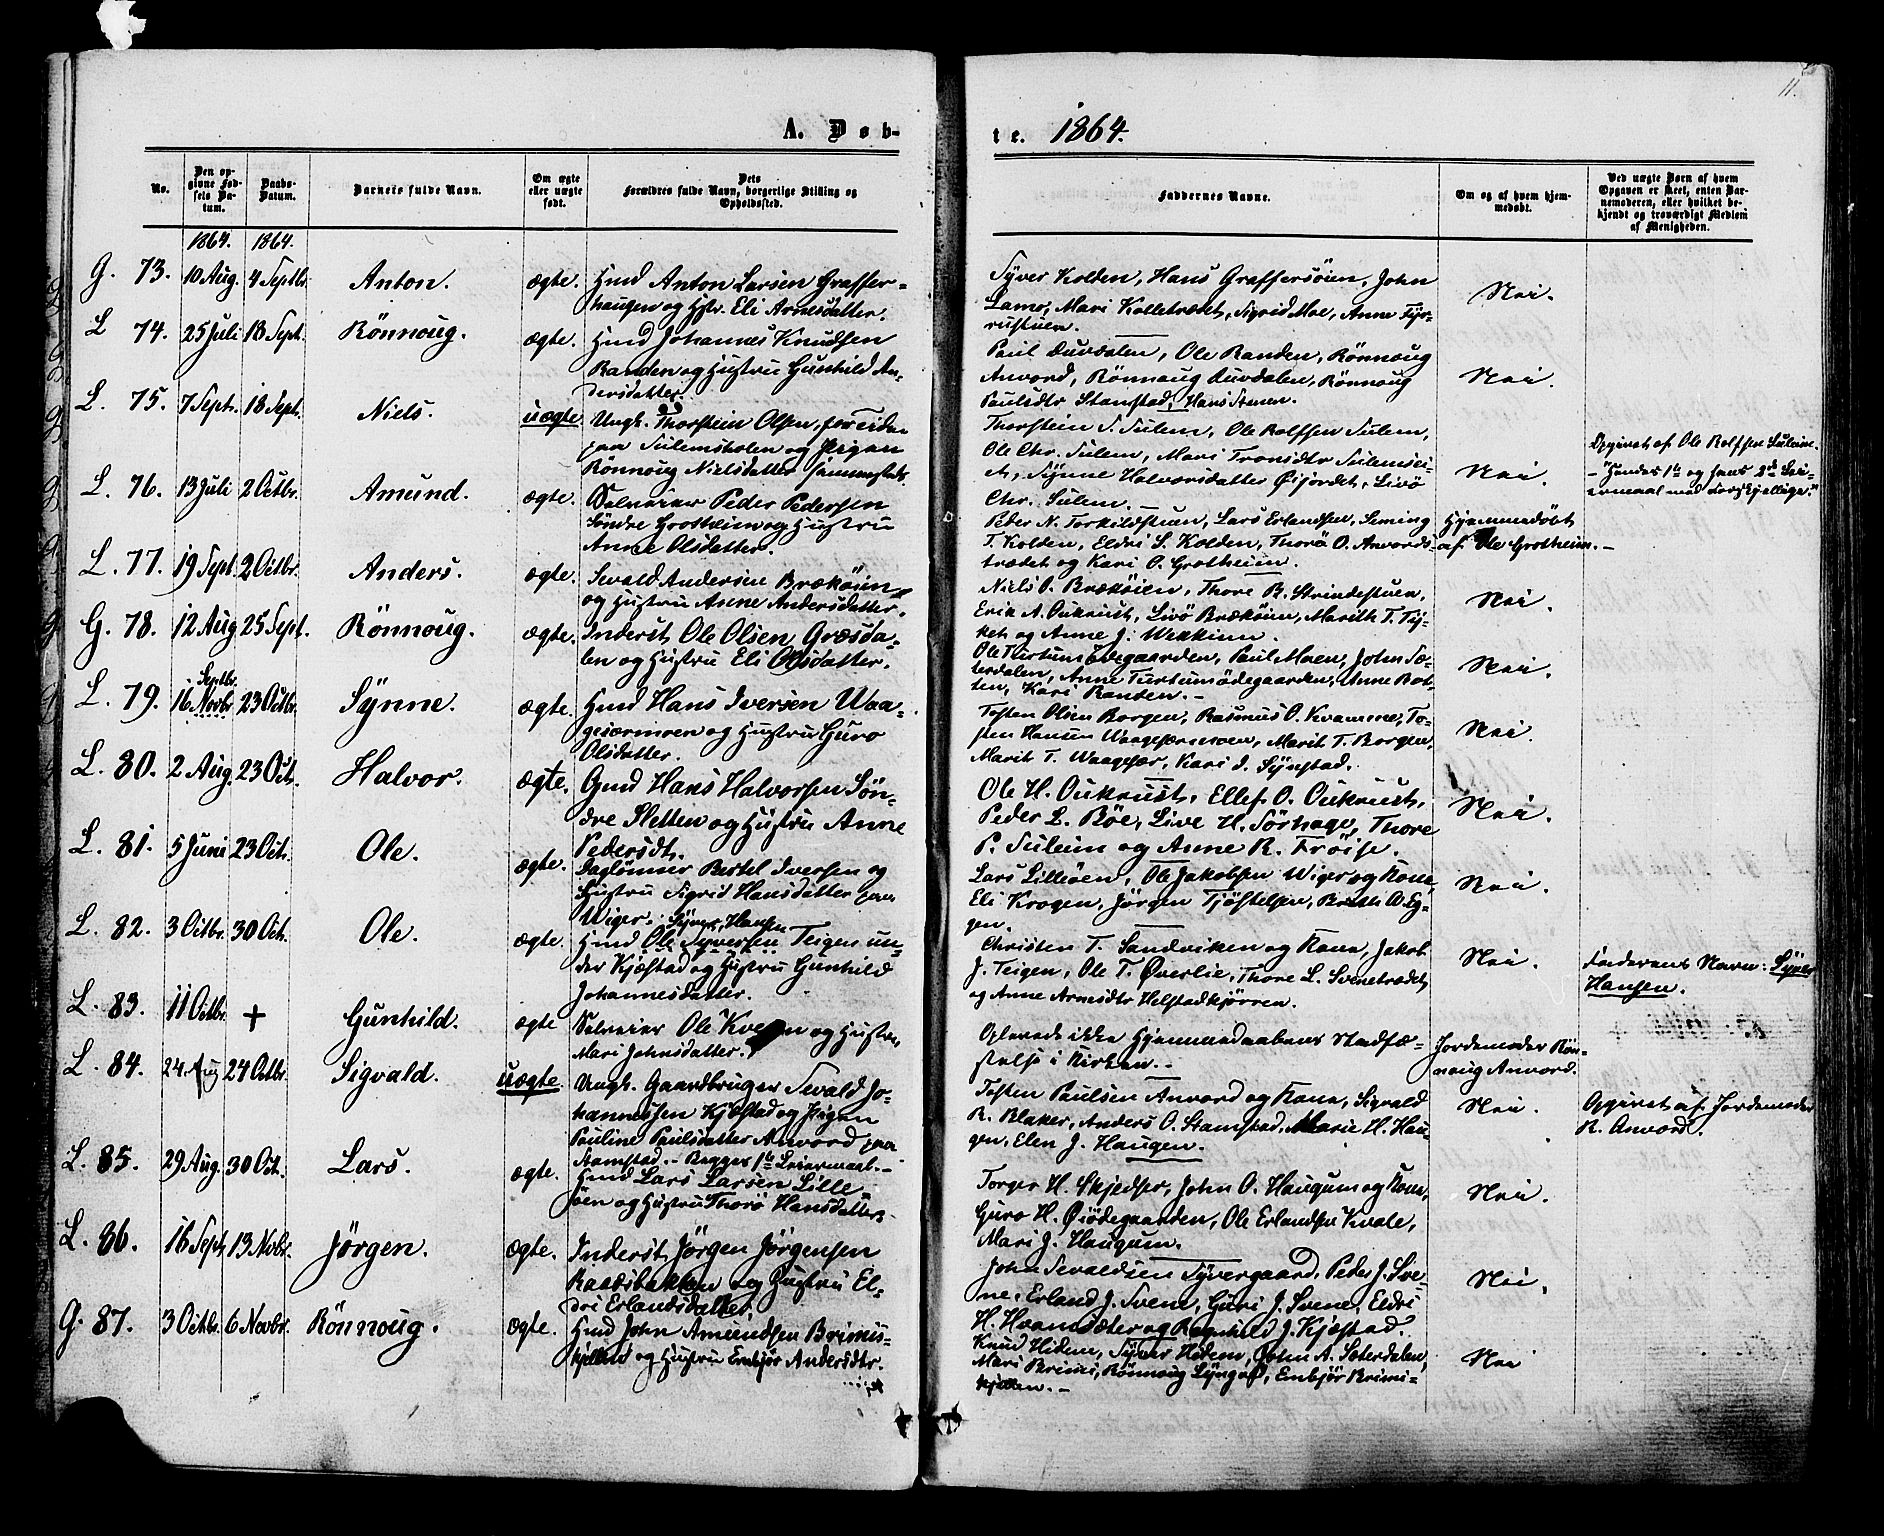 11.
A. Døb-
te. 1864.
No.
Den op-
givne Fød-
sels Da-
tum.
Daabs-
Datum.
Barnets fulde Navn.
Om ægte
eller uægte
født.
Dets
Forældres fulde Navn, borgerlige Stilling og
Opholdssted.
Faddernes Navne.
Om og af hvem hjem-
medøbt.
Ved uægte Børn af hvem
Opgaven er skeet, enten Bar-
nemoderen, eller hvilket be-
kjendt og troværdigt Medlem
af Menigheden.
1864. 1864.
G. 73. 10 Aug. 4 Septbr. Anton. ægte.
Gmd Anton Larsen Graffer-
haugen og Hstr. Eli Arnesdatter.
Syver Kolden, Hans Graffersøien, John
Lamo, Mari Kolletrædet, Sigrid Moe, Anne Tyr-
rustuen.
Nei.
L 74. 25 Juli 18 Sept. Rönnoug. ægte.
Gmd Johannes Knudsen
Randen og Hustru Gunhild An-
dersdatter.
Paul Duvdalen, Ole Randen, Rönnoug
Anvord, Rönnoug Duvdalen, Rönnoug
Paulsdtr Stamstad, Hans
Nei.
L. 75. 7 Sept. 18 Sept. Niels. uægte
Ungk. Thorstein Olsen,
paa Sulemsholen og Pigen
Rönnoug Nielsdatter sammesteds.
Thorstein T. Sulem, Ole Rolfsen Sulem,
Ole Chr. Sulem, Mari Tronsdtr Sulemsei-
et, Synne Halvorsdatter Øifordet, Livö
Chr. Sulem.
Nei.
Opgivet af Ole Rolfsen Suleim.
- "Hendes 1te og hans 2det Lei-
ermaal med forskjellige."
L. 76. 13 Juli 2 Octbr. Amund. ægte.
Selveier Peder Pedersen
Söndre Grotheim og Hustru
Anne Olsdatter.
Peder N. Torkildstuen, Lars Erlandsen, Seming
T. Kolden, Eldri S. Kolden, Thorö O. Anvords-
trædet og Kari O. Grotheim.
Hjemmedöbt
af Ole Grotheim.-
L. 77. 19 Sept. 2 Octbr. Anders. ægte.
Sevald Andersen Brækøien
og Hustru Anne Andersdatter.
Niels O. Brækøien, Thore B. Strindestuen,
Erik A. Oukrust, Livö Brækøien, Marith T.
og Anne J.
Nei.
G. 78. 12 Aug 25 Sept. Rönnoug. ægte.
Inderst Ole Olsen Græsda-
len og Hustru Eli Olsdatter.
Ole Turtumödegaarden, Paul Moen, John Sæ-
terdalen, Anne Turtumödegaarden, Anne Bot-
ten, Kari Randen.-
Nei.
L. 79. Septbr. 16 Novbr 23 Octbr. Synne. ægte.
Gmd Hans Iversen Waa-
gesærmoen og Hustru Guro
Olsdatter.
Tosten Olsen Borgen, Rasmus O. Kvamme, To-
sten Hansen Waagesærmoen, Marit T. Borgen,
Marit T. Waagesær, Kari J. Synstad.
Nei.
L. 80. 2 Aug. 23 Oct. Halvor. ægte.
Gmd Hans Halvorsen Sön-
dre Sletten og Hustru Anne
Pedersdt.
Ole H. Oukrust, Ellef O. Oukrust,
Peder L. Böe, Live H. Sörhage, Thore
P. Suleim og Anne R. Fröise.
Nei.
L. 81. 5 Juni 23 Oct. Ole. ægte.
Daglönner Bertel Iversen og
Hustru Sigrid Hansdatter paa
Wiger.
Lars Lilleöen, Ole Jakobsen Wiger og Kone,
Eli Krogen, Jörgen Tjöstelsen, Brith O. Eg-
gen.
Nei.
L. 82. 3 Octbr. 30 Oct. Ole. ægte.
Syver Hansen
Gmd Ole Syversen Teigen un-
der Kjæstad og Hustru Gunhild
Johannesdatter.
Christen T. Sandviken og Kone, Jakob
J. Teigen, Ole T. Øverlie, Thore L. Svenetrædet
og Anne Arnesdtr Helstadkjörren.
Nei.
Faderens Navn: Syver
Hansen.
L. 83. 11 Octbr. + Gunhild. ægte
Selveier Ole Kveen og Hustru
Mari Johnsdatter.
Oplevede ikke Hjemmedaabens Stadfæ-
stelse i Kirken.-
Jordemoder Rön-
noug Anvord.
L. 84. 24. Aug 24 Octbr. Sigvald. uægte.
Ungk. Gaardbruger Sevald Jo-
hannessen Kjæstad og Pigen
Pauline Paulsdatter Anvord paa
Stamstad.- Begges 1te Leiermaal.-
Tosten Paulsen Anvord og Kone, Sigvald
R. Blaker, Anders O. Stamstad, Marie H. Hau-
gen, Elen J. Haugen.
Nei.
Opgivet af Jordemoder
R. Anvord.
L. 85. 29 Aug. 30 Oct. Lars. ægte.
Gmd Lars Larsen Lille
öen og Hustru Thorö Hansdatter.
Torger H. Skjedser, John O. Haugum og Kone,
Guro H. Øiödegaarden, Ole Erlandsen Kvale,
Mari J. Haugum.
Nei.
L. 86. 16 Sept. 13 Novbr. Jörgen. ægte.
Inderst Jörgen Jörgensen
Raaesbakken og Hustru El-
dri Erlandsdatter.
John Sevaldsen Syvergaard, Peder J. Sve-
ne, Erland J. Svene, Guri J. Svene, Eldri
H. Hvamsæter og Ragnhild J. Kjæstad.
Nei.
G. 87. 3 Octbr. 6 Novbr. Rönnoug. ægte.
Gmd John Amundsen Brimis-
kjellen og Hustru Embjör Andersdtr.
Knud Hidem, Syver Hidem, John A. Sæterdalen,
Mari Brimi, Rönnoug Lyngved, Embjör Brimi-
kjellen.-
Nei